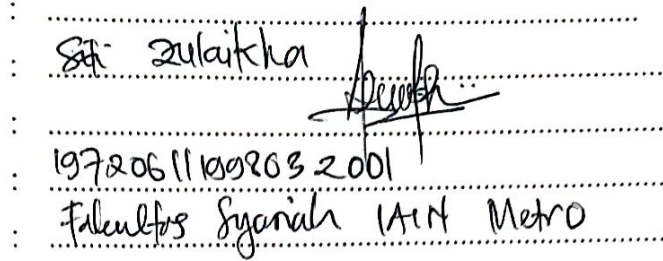 Siti Zulaikha
197206111998032001
Fakultas Syariah IAIN Metro